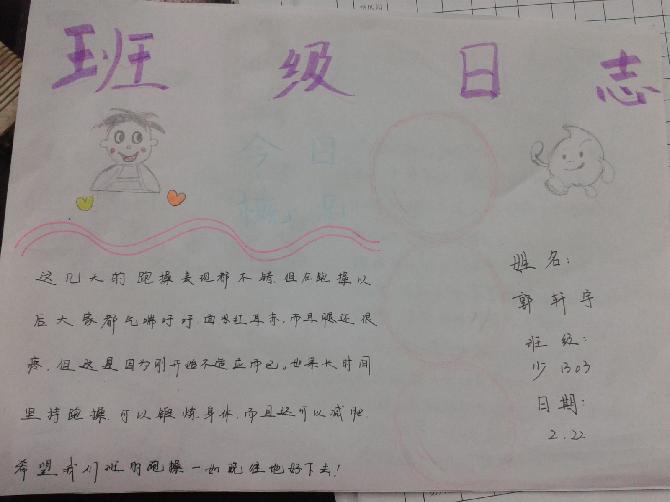 班级日志
今日
这几天的跑操表现都不错,但在跑操以
后大家都气喘吁吁,面红耳赤,而且腿还很
疼,但这是因为刚开始不适应而已。如果长时间
坚持跑操,可以锻炼身体,而且还可以减肥.
希望我们班的跑操一如既往地好下去!
姓名:
郭轩宇
班级:
少1303
日期:
2.22